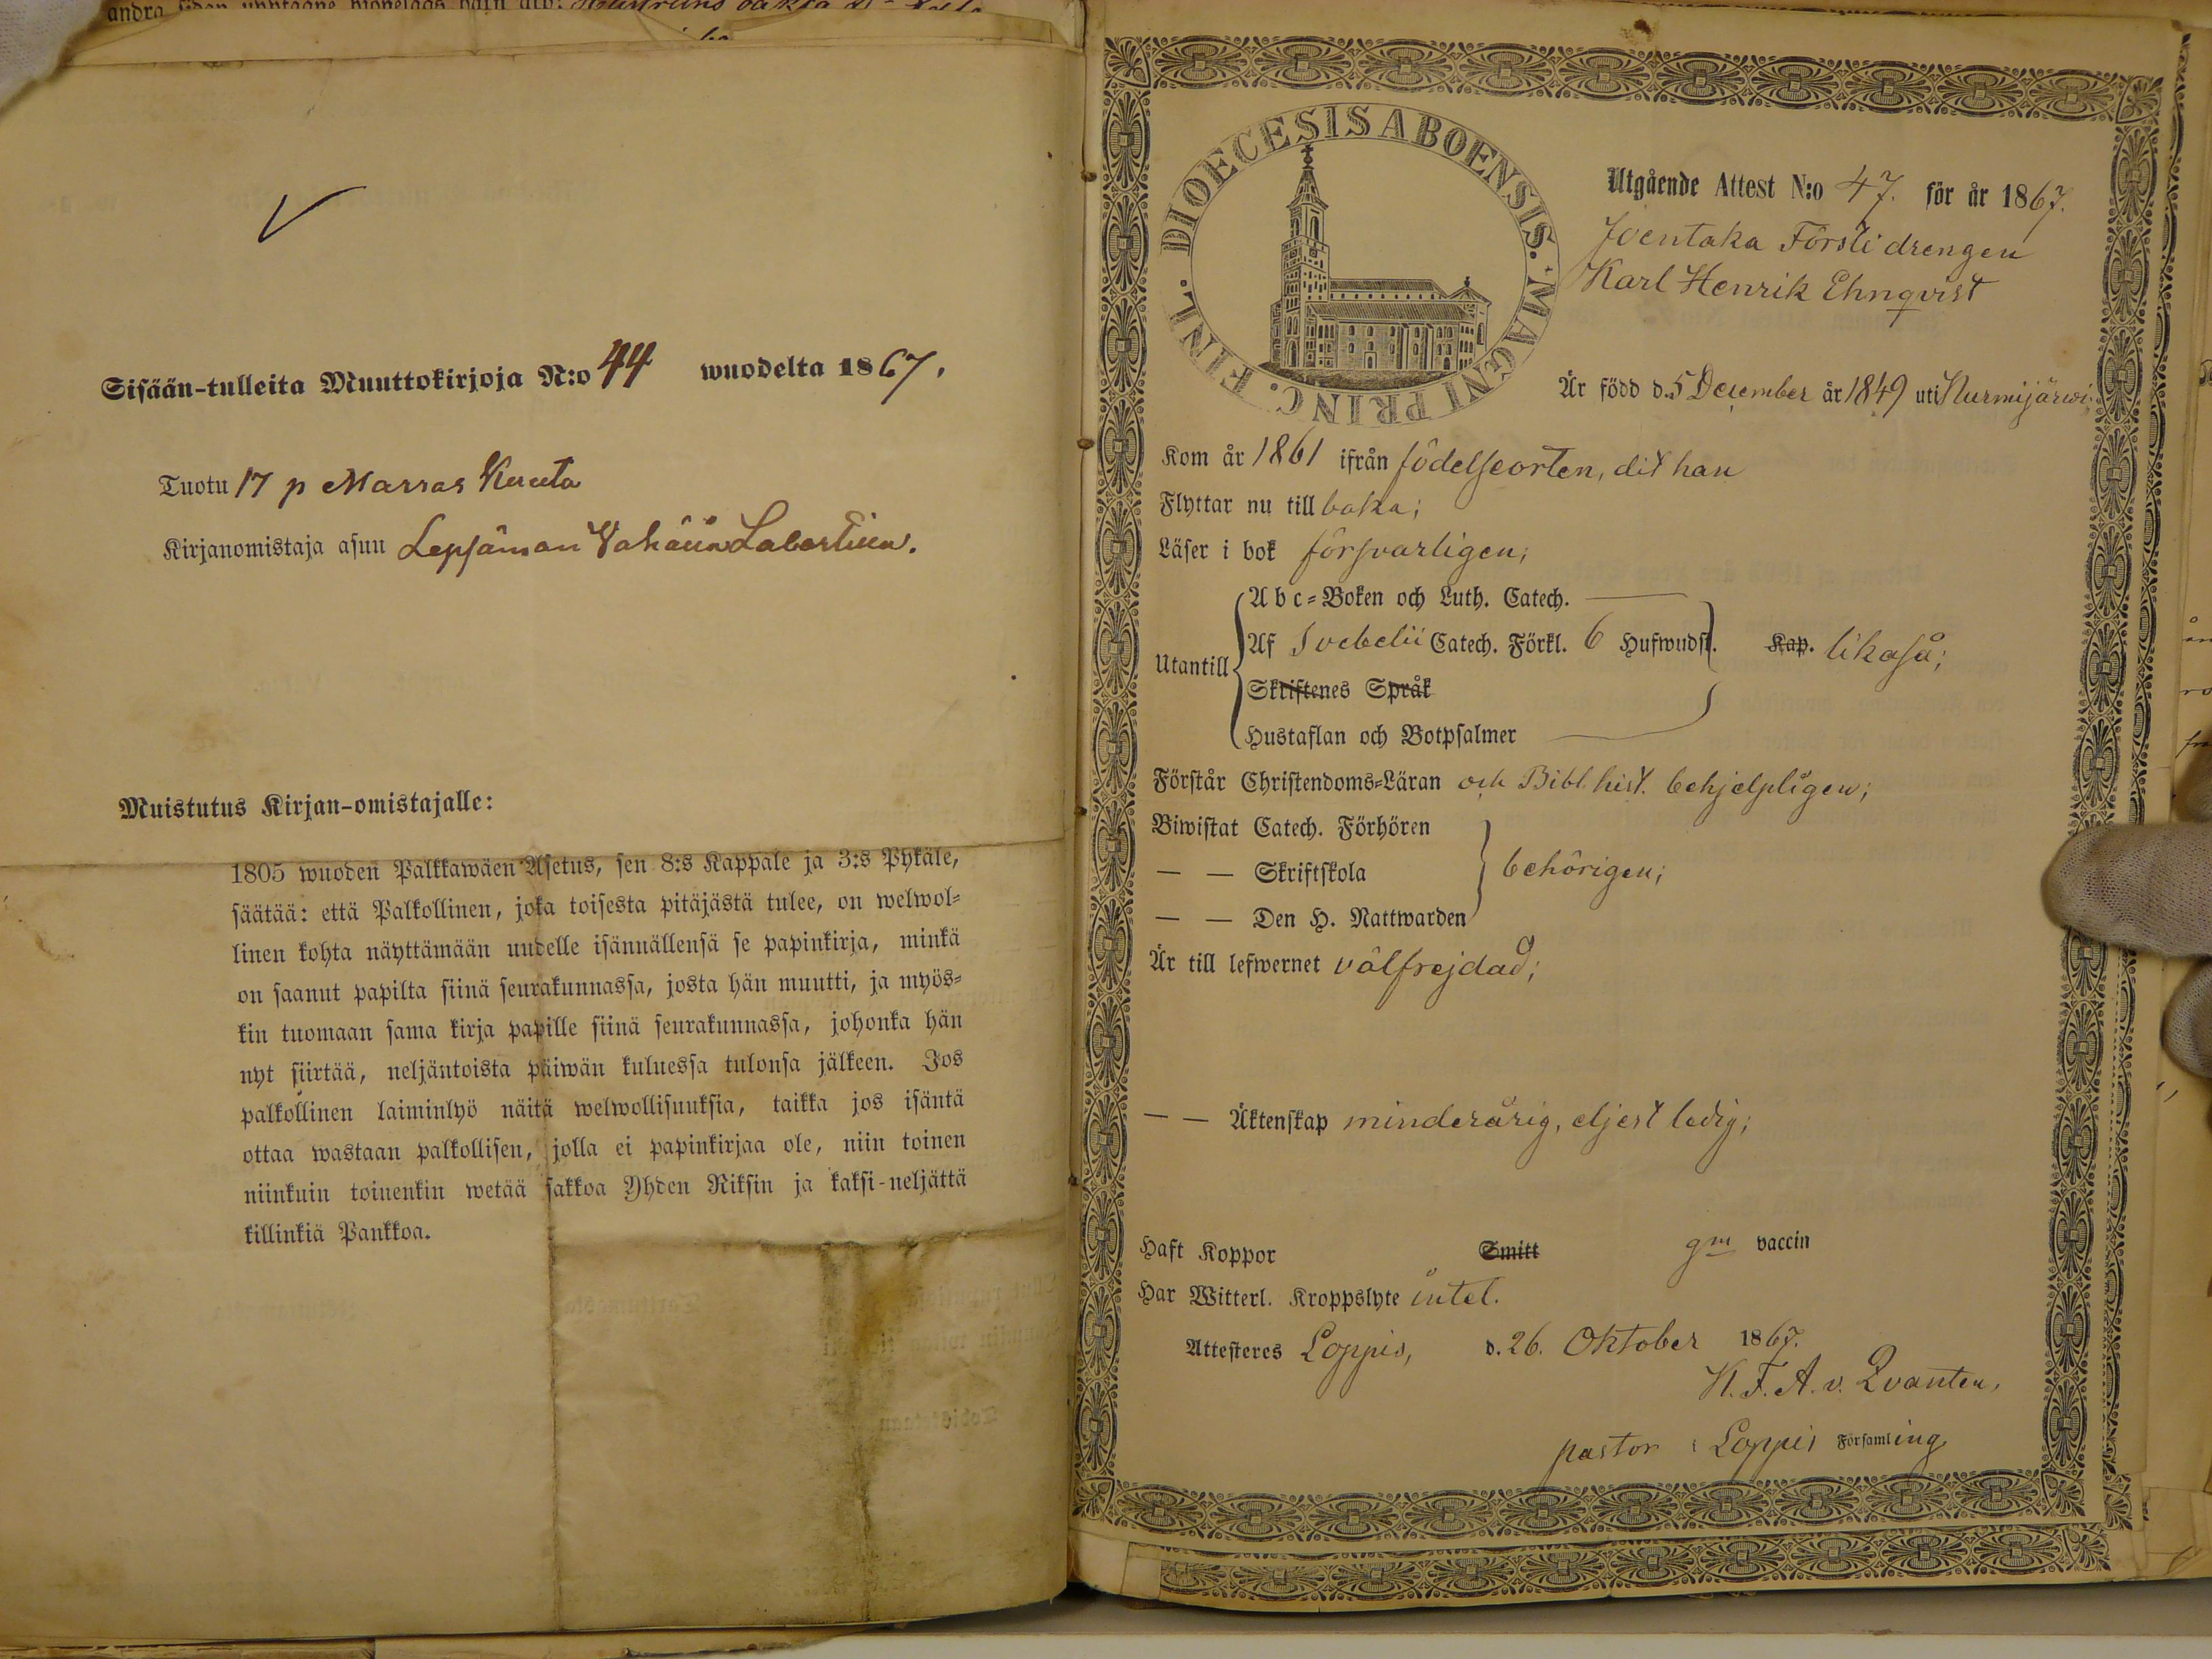 andra sidan
Sisään-tulleita Muuttokirjoja N:o 44 wuodelta 1867.
Tuotu 17 p Marras Kuuta
Kirjanomistaja asuu Lepsäman
Muistutus Kirjan-omistajalle:
1805 wuoden Palkkawäen Asetus, sen 8:s Kappale ja 3:s Pykäle,
säätää: että Palkollinen, joka toisesta pitäjästä tulee, on welwol-
linen kohta näyttämään uudelle isännällensä se papinkirja, minkä
on saanut papilta siinä seurakunnassa, josta hän muutti, ja myös-
kin tuomaan sama kirja papille siinä seurakunnassa, johonka hän
nyt siirtää, neljäntoista päiwän kuluessa tulonsa jälkeen. Jos
palkollinen laiminlyö näitä welwollisuuksia, taikka jos isäntä
ottaa wastaan palkollisen, jolla ei papinkirjaa ole, niin toinen
niinkuin toinenkin wetää sakkoa Yhden Riksin ja kaksi-neljättä
killinkiä Pankkoa.
DIOECESIS ABOENSIS. MAGNI PRINC. FINL.
Utgående Attest N:o 47. för år 1867.
Joentaka Försti drengen
Karl Henrik Ehnqvist
Är född d. 5 December år 1849 uti Nurmijärwi.
Kom år 1861 ifrån födelseorten, dit han
Flyttar nu till baka;
Läser i bok försvarligen;
Utantill
Abc-Boken och Luth. Catech.
Af Svebelii Catech. Förkl. 6 Hufwudst. Kap. likaså;
Skriftenes Språk
Hustaflan och Botpsalmer
Förstår Christendoms-Läran och Bibl. hist. behjelpligen;
Biwistat Catech. Förhören
— — Skriftskola behörigen;
— — Den H. Nattwarden
Är till lefwernet välfrejdad;
— — Äktenskap minderårig, eljest ledig;
Haft Koppor Smitt gm vaccin
Har Witterl. Kroppslyte intet.
Attesteres Loppis, d. 26. Oktober 1867.
K. F. A. v. Qvanten,
pastor i Loppis Församling